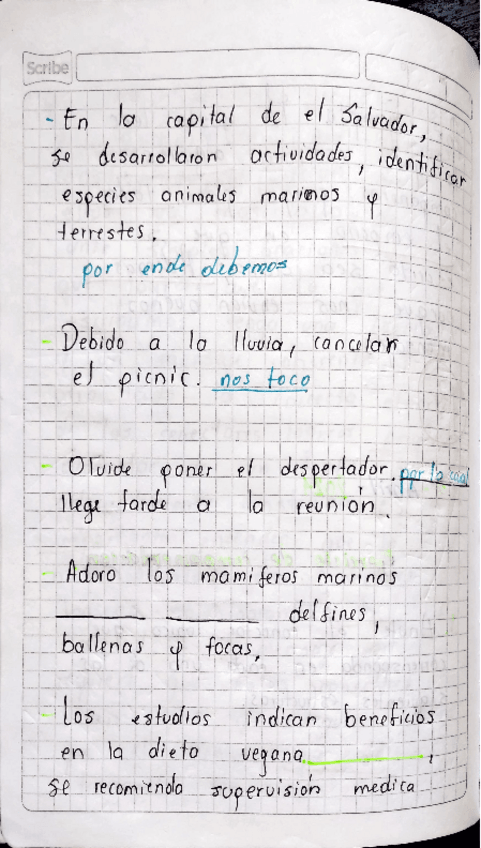 Scribe
- En la capital de el Salvador,
se desarrollaron actividades, identificar
especies animales marinos y
terrestes.
por ende debemos
- Debido a la lluvia, cancelar
el picnic. nos toco
- Olvide poner el despertador. por lo cual
llege tarde a la reunión.
- Adoro los mamiferos marinos
delfines,
ballenas y focas,
- Los estudios indican beneficios
en la dieta vegana ,
se recomienda supervisión medica